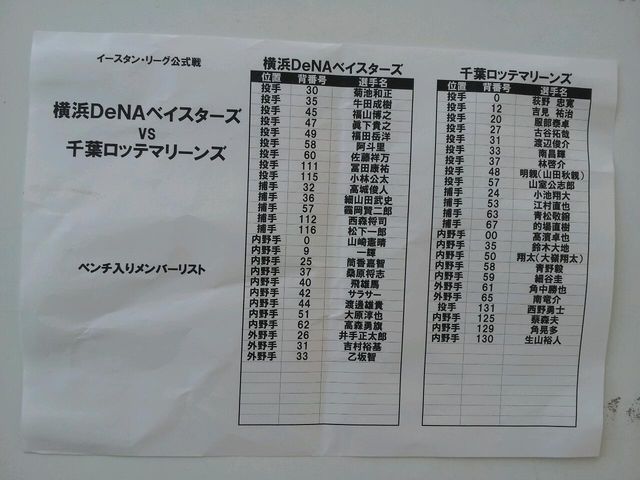 イースタン・リーグ公式戦
横浜DeNAベイスターズ
VS
千葉ロッテマリーンズ
ベンチ入りメンバーリスト
横浜DeNAベイスターズ
位置 背番号 選手名
投手 30 菊池和正
投手 35 牛田成樹
投手 45 福山博之
投手 47 眞下貴之
投手 49 福田岳洋
投手 58 阿斗里
投手 60 佐藤祥万
投手 111 冨田康祐
投手 115 小林公太
捕手 32 高城俊人
捕手 36 細山田武史
捕手 57 靏岡賢二郎
捕手 112 西森将司
捕手 116 松下一郎
内野手 0 山崎憲晴
内野手 9 一輝
内野手 25 筒香嘉智
内野手 37 桑原将志
内野手 40 飛雄馬
内野手 42 サラサー
内野手 44 渡邊雄貴
内野手 51 大原淳也
内野手 62 高森勇旗
外野手 26 井手正太郎
外野手 31 吉村裕基
外野手 33 乙坂智
千葉ロッテマリーンズ
位置 背番号 選手名
投手 0 荻野 忠寛
投手 12 吉見 祐治
投手 20 服部泰卓
投手 27 古谷拓哉
投手 31 渡辺俊介
投手 33 南昌輝
投手 37 林啓介
投手 48 明親(山田秋親)
投手 57 山室公志郎
捕手 24 小池翔大
捕手 53 江村直也
捕手 63 青松敬鎔
捕手 67 的場直樹
内野手 00 高濱卓也
内野手 35 鈴木大地
内野手 50 翔太(大嶺翔太)
内野手 58 青野毅
内野手 59 細谷圭
外野手 61 角中勝也
外野手 65 南竜介
投手 131 西野勇士
内野手 125 蔡森夫
内野手 129 角晃多
内野手 130 生山裕人